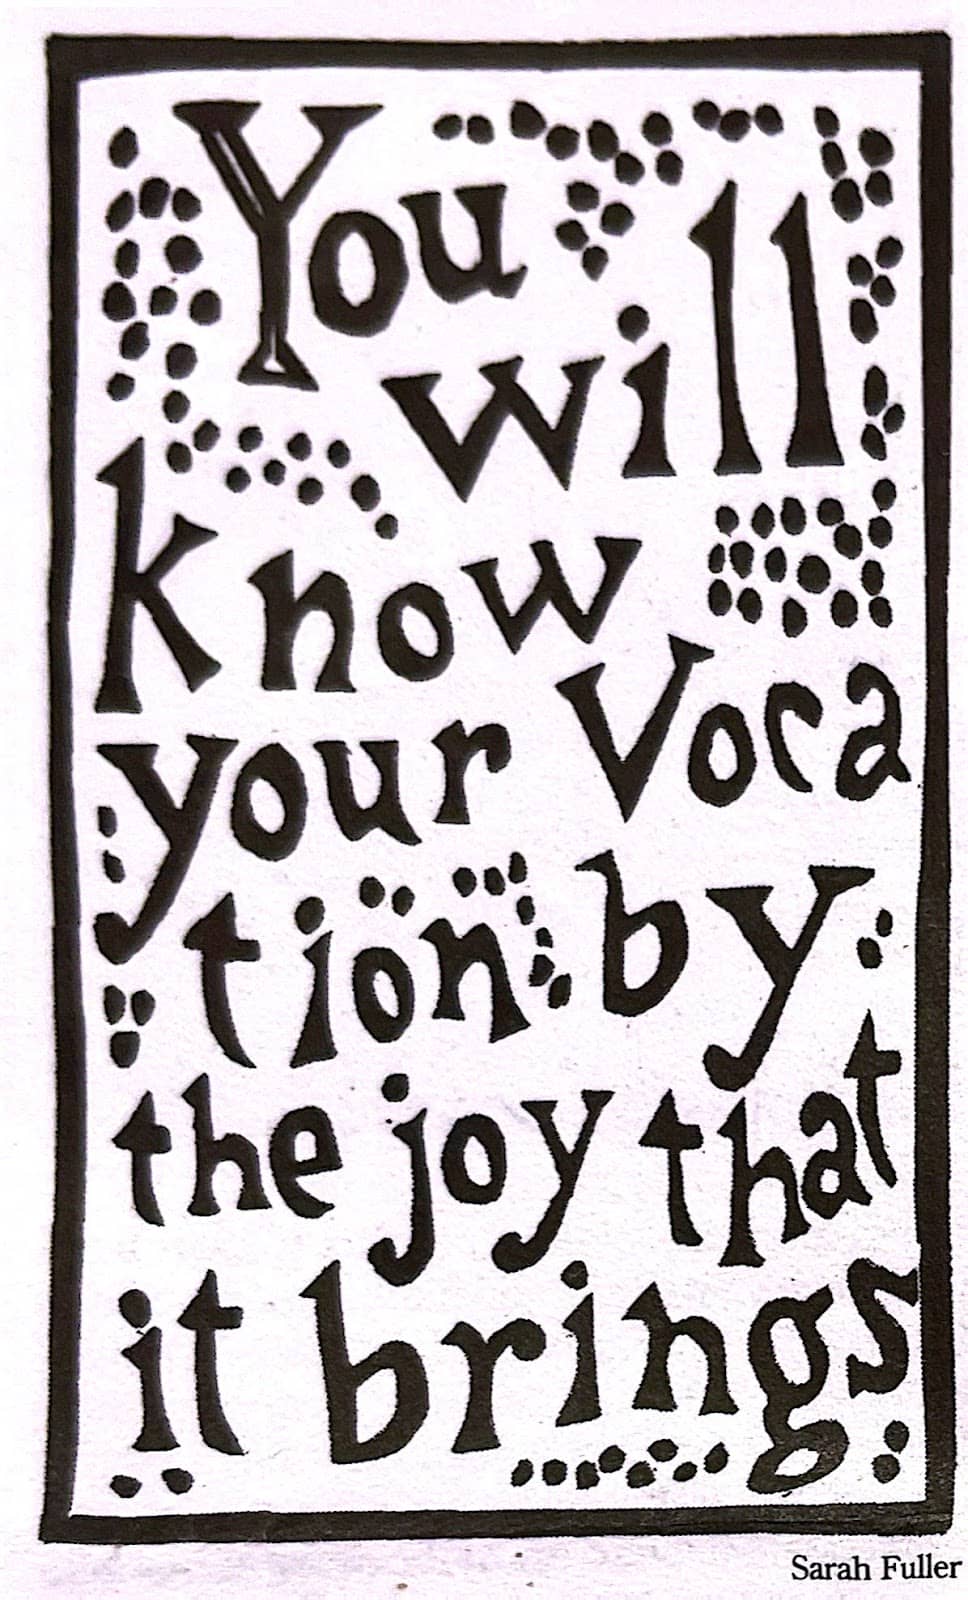 You
will
know
your Voca
tion by
the joy that
it brings
Sarah Fuller